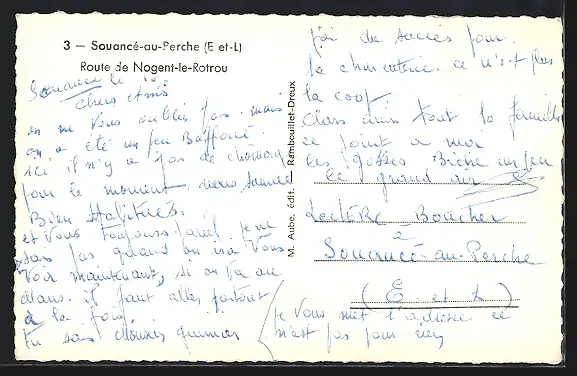 3 — Souancé-au-Perche (E et-L)
Route de Nogent-le-Rotrou
Souancé le
Chers Amis
on ne vous oublie pas. mais
on a été un peu Baffoué.
ici il n'y a pas de chomage
pour le moment. nous sommes
Bien Habitués.
et vous toujours pareil je ne
sais pas quand on ira vous
voir maintenant, si on va au
il faut aller partout
à la fois.
tu sais
M. Aube, édit. Rambouillet-Dreux
de succès pour
la charcuterie ce n'est plus
la coop.
Chers amis tout la famille
ce joint a moi
les gosses un peu
le grand air
Leclère Boucher
a
Souancé-au-Perche
(E et L)
je vous met l'adresse ce
n'est pas pour rien